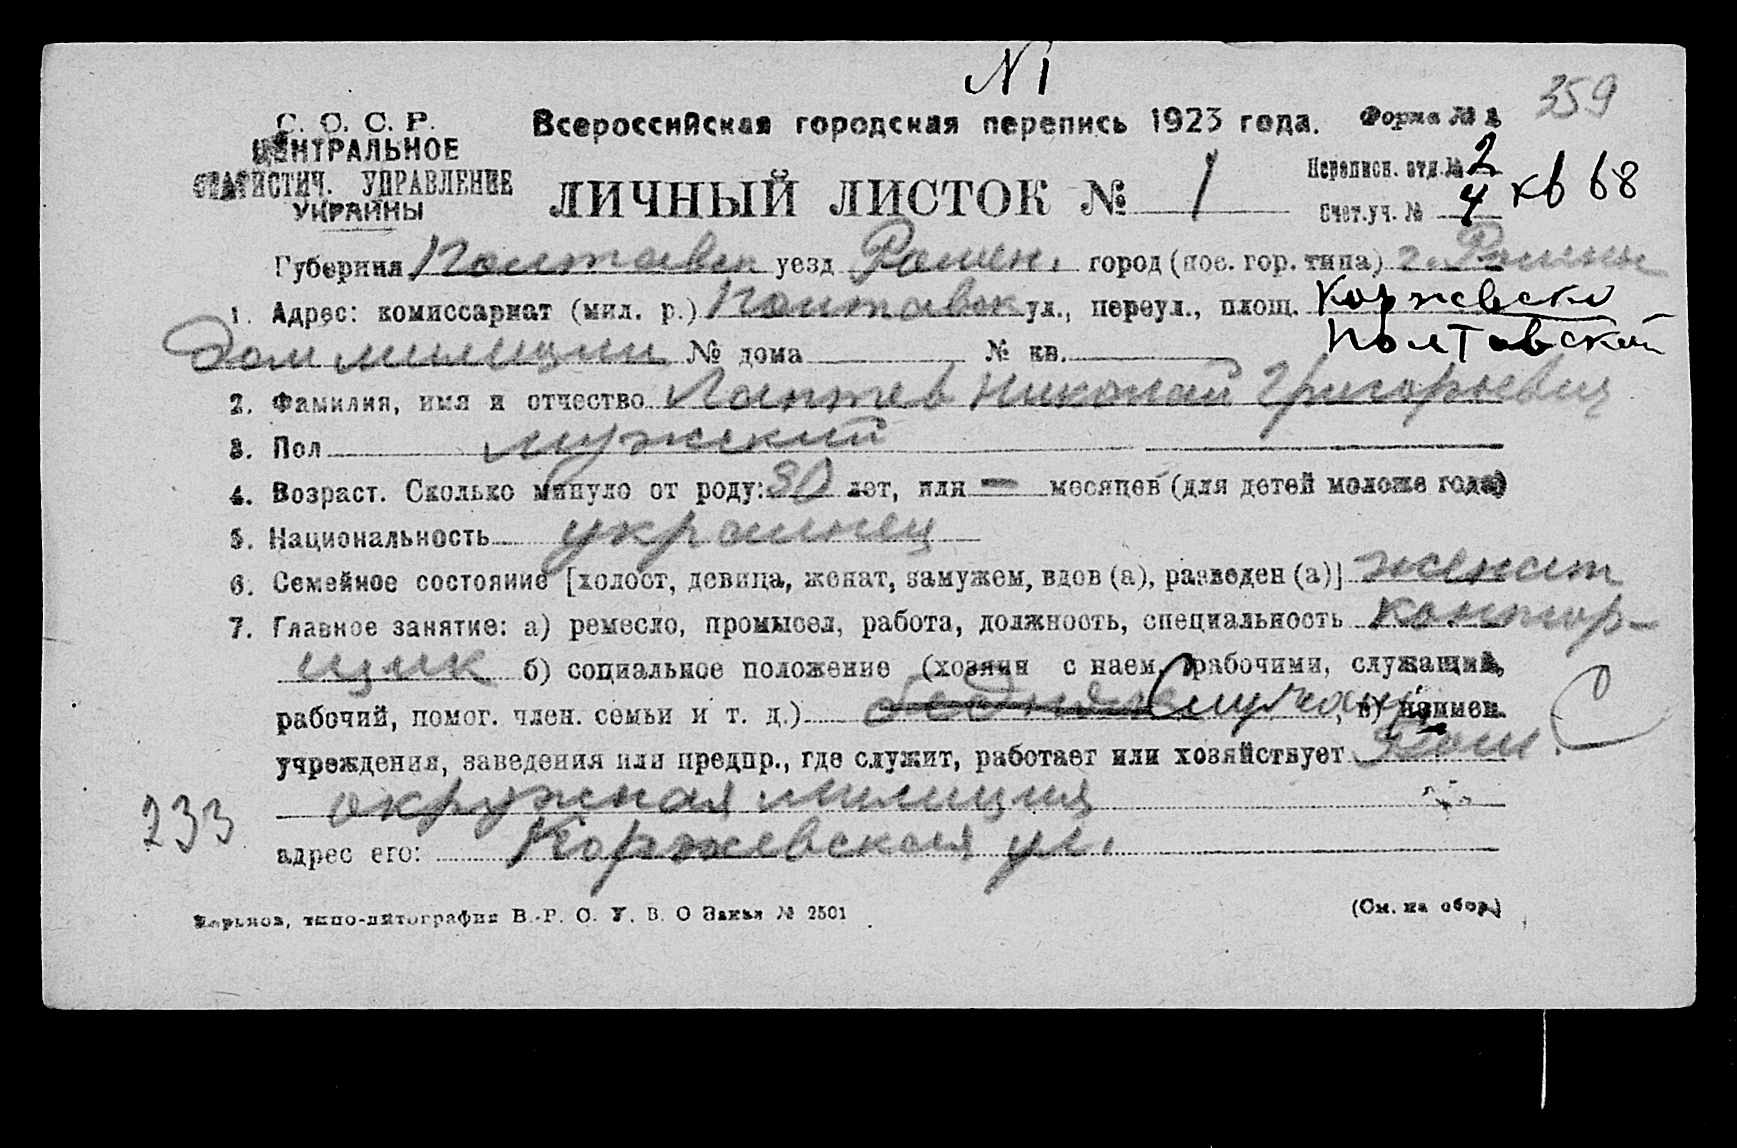 N 1
359
С. С. С. Р.
ЦЕНТРАЛЬНОЕ
СТАТИСТИЧ. УПРАВЛЕНИЕ
УКРАИНЫ
Всероссийская городская перепись 1923 года.
Форма № 1
ЛИЧНЫЙ ЛИСТОК № 1
Переписн. отд. № 2
Счет. уч. № 4 кв 68
Губерния Полтавск уезд Ромен. город (пос. гор. типа) г. Ромны
1. Адрес: комиссариат (мил. р.) Полтавск ул., переул., площ. Коржевско
Полтавский
Дом милиции № дома № кв.
2. Фамилия, имя и отчество Лаптев Николай Григорьевич
3. Пол мужский
4. Возраст. Сколько минуло от роду: 30 лет, или — месяцев (для детей моложе года)
5. Национальность украинец
6. Семейное состояние [холост, девица, женат, замужем, вдов (а), разведен (а)] женат
7. Главное занятие: а) ремесло, промысел, работа, должность, специальность контор-
щик б) социальное положение (хозяин с наем. рабочими, служащий,
рабочий, помог. член. семьи и т. д.) Служащ, в) наимен.
учреждения, заведения или предпр., где служит, работает или хозяйствует Ром.
С
окружная милиция
233
адрес его: Коржевская ул.
Харьков, типо-литография В.-Р. С. У. В. О Заказ № 2501
(См. на обор.)